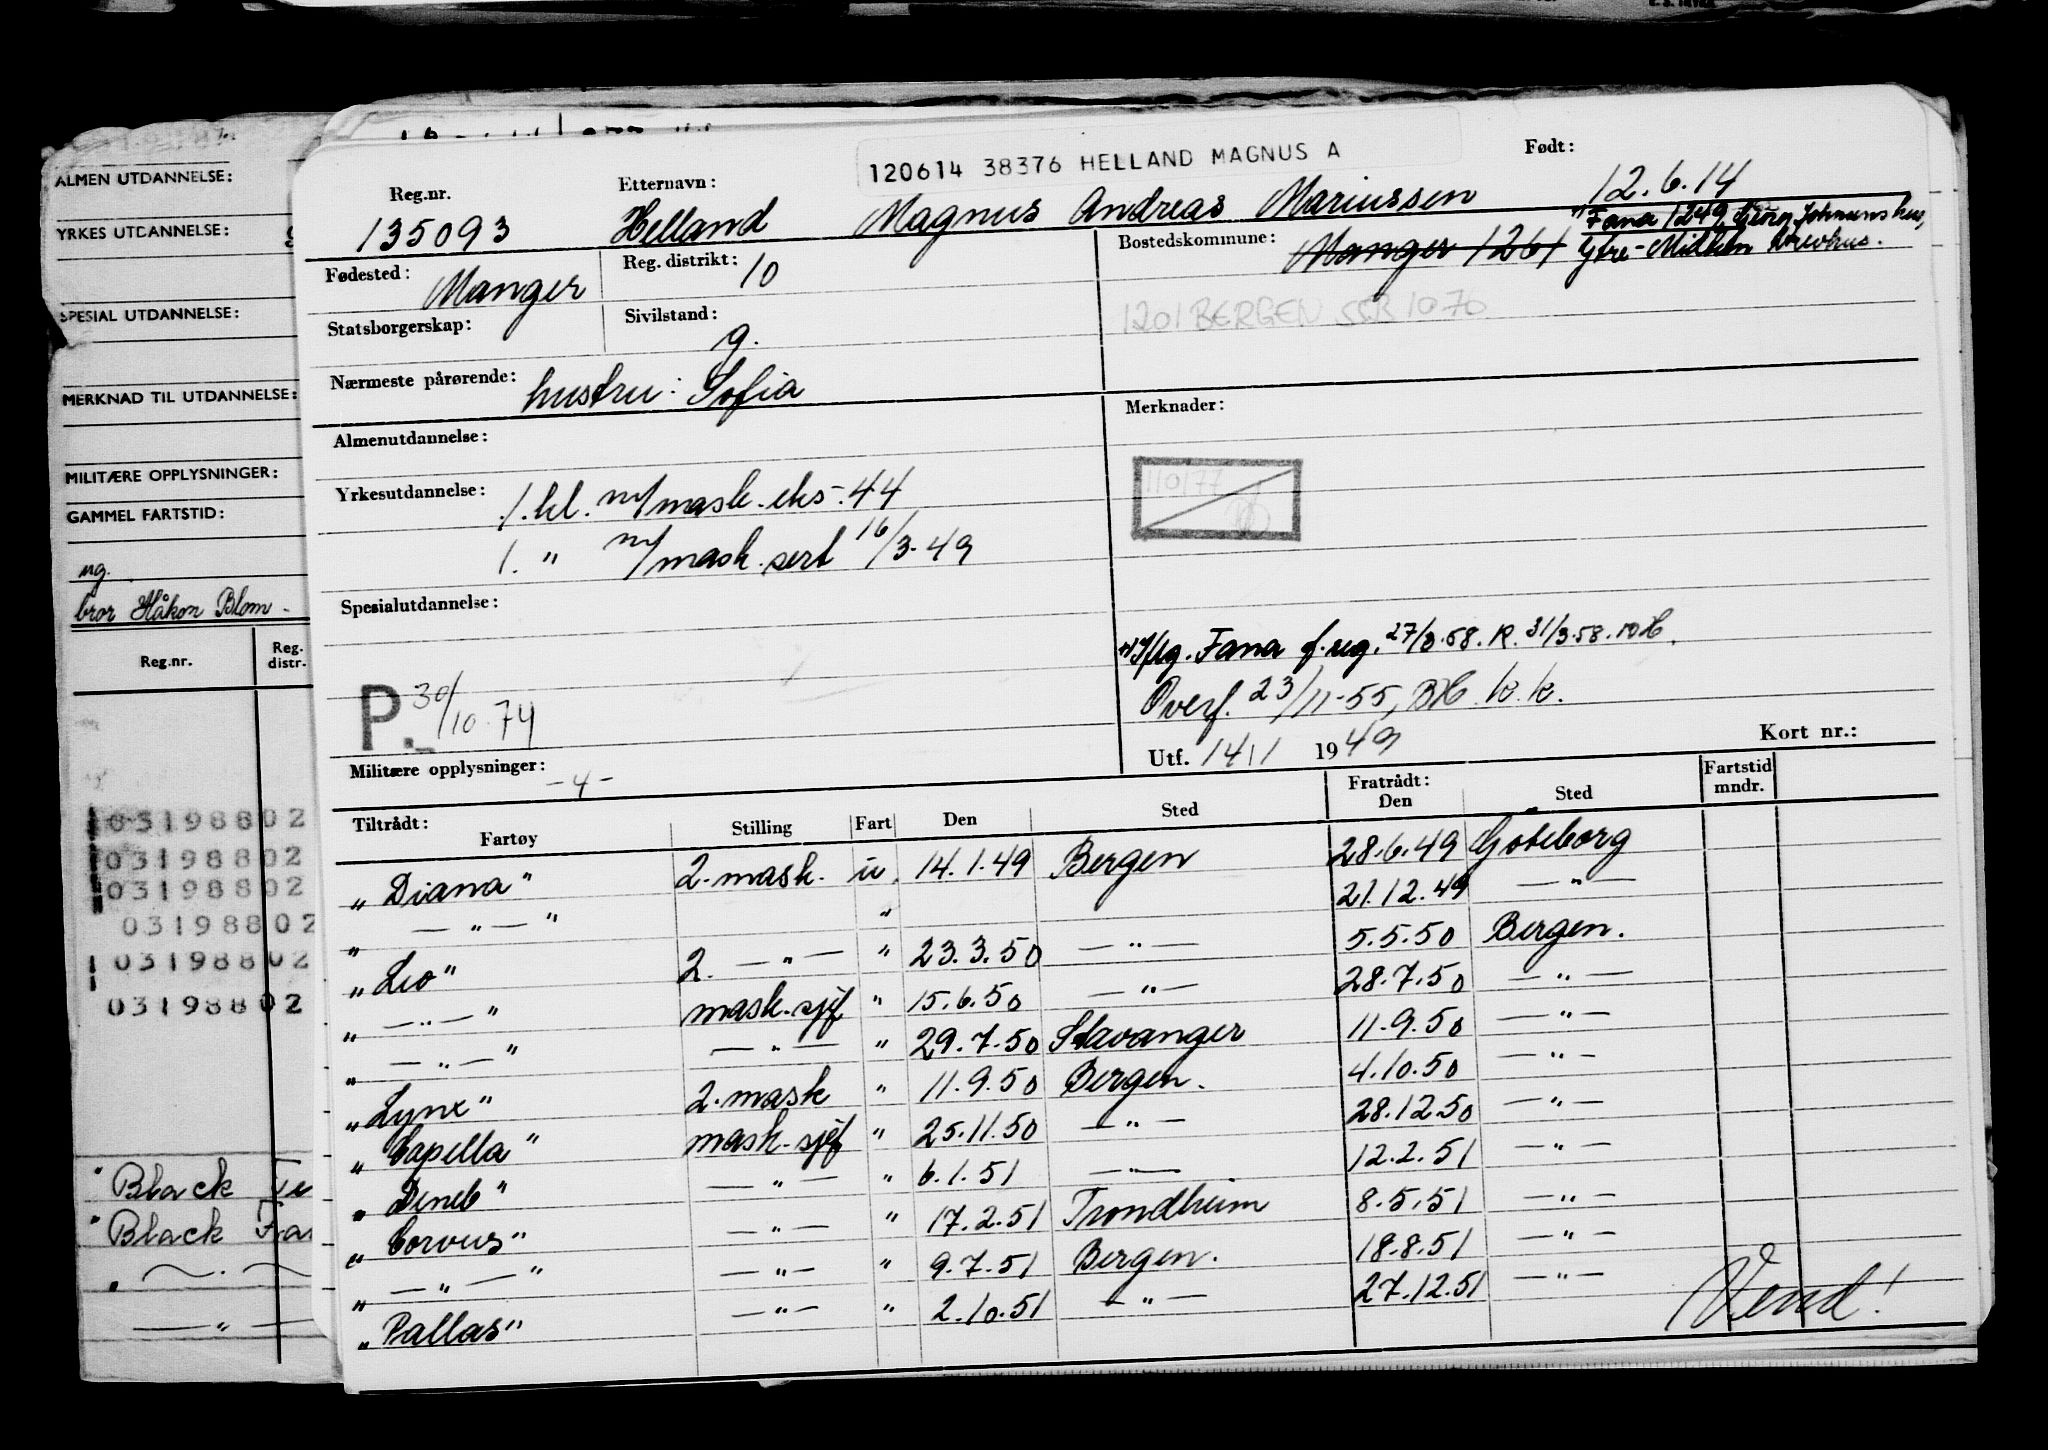 ALMEN UTDANNELSE:
YRKES UTDANNELSE:
SPESIAL UTDANNELSE:
MERKNAD TIL UTDANNELSE:
MILITÆRE OPPLYSNINGER:
GAMMEL FARTSTID:
ug.
bror Håkon Blom -
Reg.nr. Reg. distr.
03198802
03198802
03198802
03198802
03198802
03198802
" Black
" Black
120614 38376 HELLAND MAGNUS A
Reg.nr. Etternavn: Født:
135093 Helland Magnus Andreas Mariussen 12.6.14
Fødested: Manger Reg. distrikt: 10 Bostedskommune: Manger 1261 Fana 1249
Ytre-
Statsborgerskap: Sivilstand: g.
1201 BERGEN SSB 1070
Nærmeste pårørende: hustru: Sofia
Almenutdannelse: Merknader:
Yrkesutdannelse: 1. kl. m/mask. eks. 44
110177
1. " m/mask. sert 16/3-49
Spesialutdannelse:
Iflg. Fana f.reg. 27/3.58. R. 31/3.58.
P. 30/10.74
Overf. 23/11-55, BH. k.k.
Utf. 14/1 1949 Kort nr.:
Militære opplysninger: -4-
Tiltrådt: Fratrådt: Fartstid mndr.
Fartøy Stilling Fart Den Sted Den Sted
"Diana" 2. mask. u. 14.1.49 Bergen 28.6.49 Gøteborg
" — " — " " 21.12.49 — " —
"Leo" 2. — " — " 23.3.50 — " — 5.5.50 Bergen.
" — " — " mask.sjef " 15.6.50 — " — 28.7.50 — " —
" — " — " — " — " 29.7.50 Stavanger 11.9.50 — " —
"Lynx" 2. mask " 11.9.50 Bergen. 4.10.50 — " —
"Capella" mask.sjef " 25.11.50 — " — 28.12.50 — " —
"Deneb" — " — " 6.1.51 — " — 12.2.51 — " —
"Corvus" — " — " 17.2.51 Trondheim 8.5.51 — " —
" — " — " — " — " 9.7.51 Bergen. 18.8.51 — " —
"Pallas" — " — " 2.10.51 — " — 27.12.51 — " —
Vend!